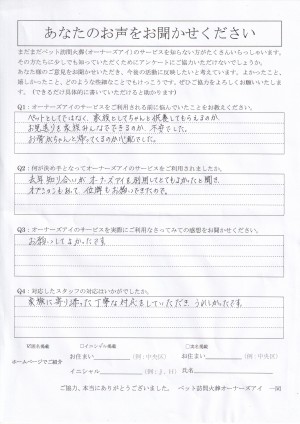 あなたのお声をお聞かせください
まだまだペット訪問火葬(オーナーズアイ)のサービスを知らない方がたくさんいらっしゃいます。
その方たちに少しでも知っていただくためにアンケートにご協力いただけないでしょうか。
あなた様のご意見をお聞かせいただき、今後の活動に反映したいと考えています。よかったこと、
嬉しかったこと、どのような些細なことでもけっこうです。ぜひご協力をよろしくお願いいたしま
す。(できるだけ具体的に書いていただけると助かります)
Q1:オーナーズアイのサービスをご利用される前に悩んでいたことをお教えください。
ペットとしてではなく、家族としてちゃんと供養してもらえるのか
お見送りを家族みんなでできるのか、不安でした。
お骨がちゃんと帰ってくるのか心配でした。
Q2:何が決め手となってオーナーズアイのサービスをご利用されましたか。
去年知り合いがオーナーズアイを利用してとてもよかったと聞き、
オプションもあって位牌もお願いできたので。
Q3:オーナーズアイのサービスを実際にご利用なさってみての感想をお聞かせください。
お願いしてよかったです
Q4:対応したスタッフの対応はいかがでしたか。
家族に寄り添った丁寧な対応をしていただきうれしかったです
ホームページでご紹介
お住まい (例:中央区)
お住まい (例:中央区)
イニシャル
氏名
ご協力、本当にありがとうございました。 ペット訪問火葬オーナーズアイ 一同